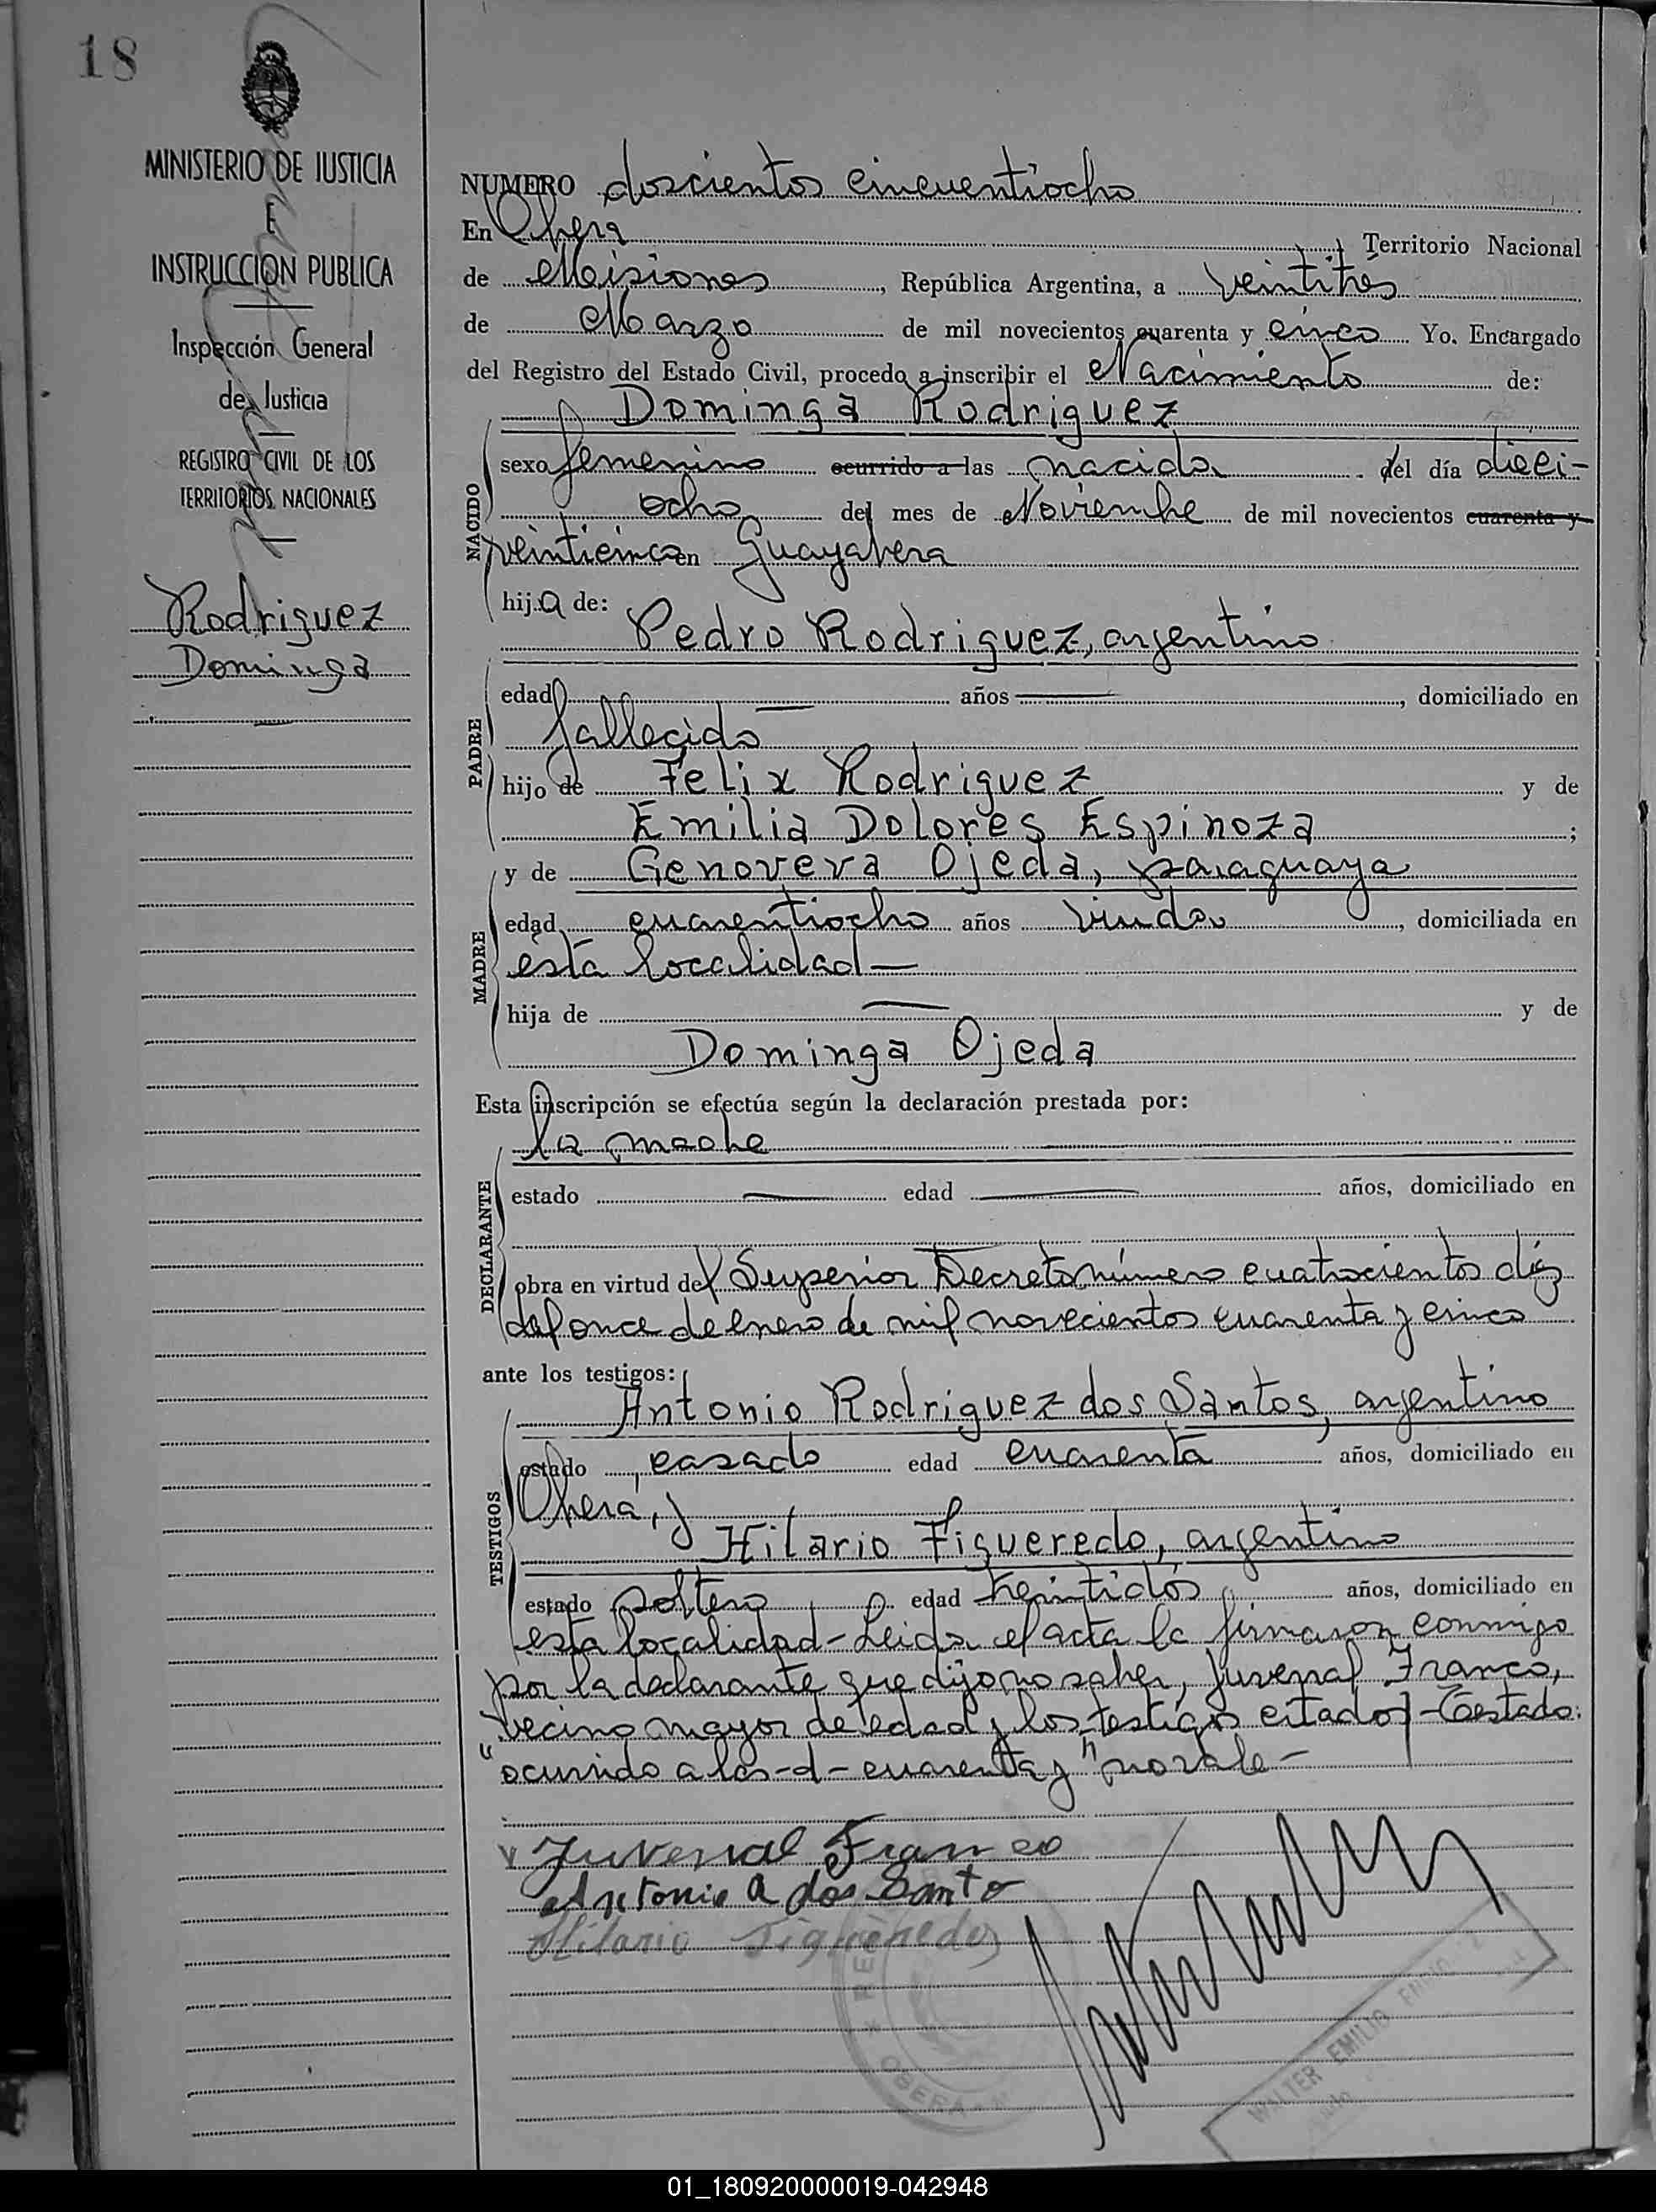 18
MINISTERIO DE JUSTICIA
E
INSTRUCCION PUBLICA
Inspección General
de Justicia
REGISTRO CIVIL DE LOS
TERRITORIOS NACIONALES
Rodriguez
Dominga
NUMERO doscientos cincuentiocho
En Obera, Territorio Nacional
de Misiones, República Argentina, a veintitres
de Marzo de mil novecientos cuarenta y cinco Yo. Encargado
del Registro del Estado Civil, procedo a inscribir el Nacimiento de:
Dominga Rodriguez
NACIDO
sexo femenino ocurrido a las nacida del día dieci-
ocho del mes de Noviembre de mil novecientos cuarenta y
veinticinco en Guayabera
hija de:
Pedro Rodriguez, argentino
PADRE
edad — años —, domiciliado en
fallecido
hijo de Felix Rodriguez y de
Emilia Dolores Espinoza;
MADRE
y de Genoveva Ojeda, paraguaya
edad cuarentiocho años viuda, domiciliada en
esta localidad—
hija de — y de
Dominga Ojeda
Esta inscripción se efectúa según la declaración prestada por:
DECLARANTE
la madre
estado — edad — años, domiciliado en
obra en virtud del Superior Decreto número cuatrocientos diez
del once de enero de mil novecientos cuarenta y cinco
ante los testigos:
TESTIGOS
Antonio Rodriguez dos Santos, argentino
estado casado edad cuarenta años, domiciliado en
Oberá, y
Hilario Figueredo, argentino
estado soltero edad treintidós años, domiciliado en
esta localidad- Leida el acta la firmaron conmigo
por la declarante que dijo no saber, Juvenal Franco,
vecino mayor de edad y los testigos citados- Testado:
"ocurrido a las-d- cuarenta y" no vale-
Juvenal Franco
Antonio a dos Santo
Hilario Figueredo
OBERA
WALTER EMILIO
01_180920000019-042948